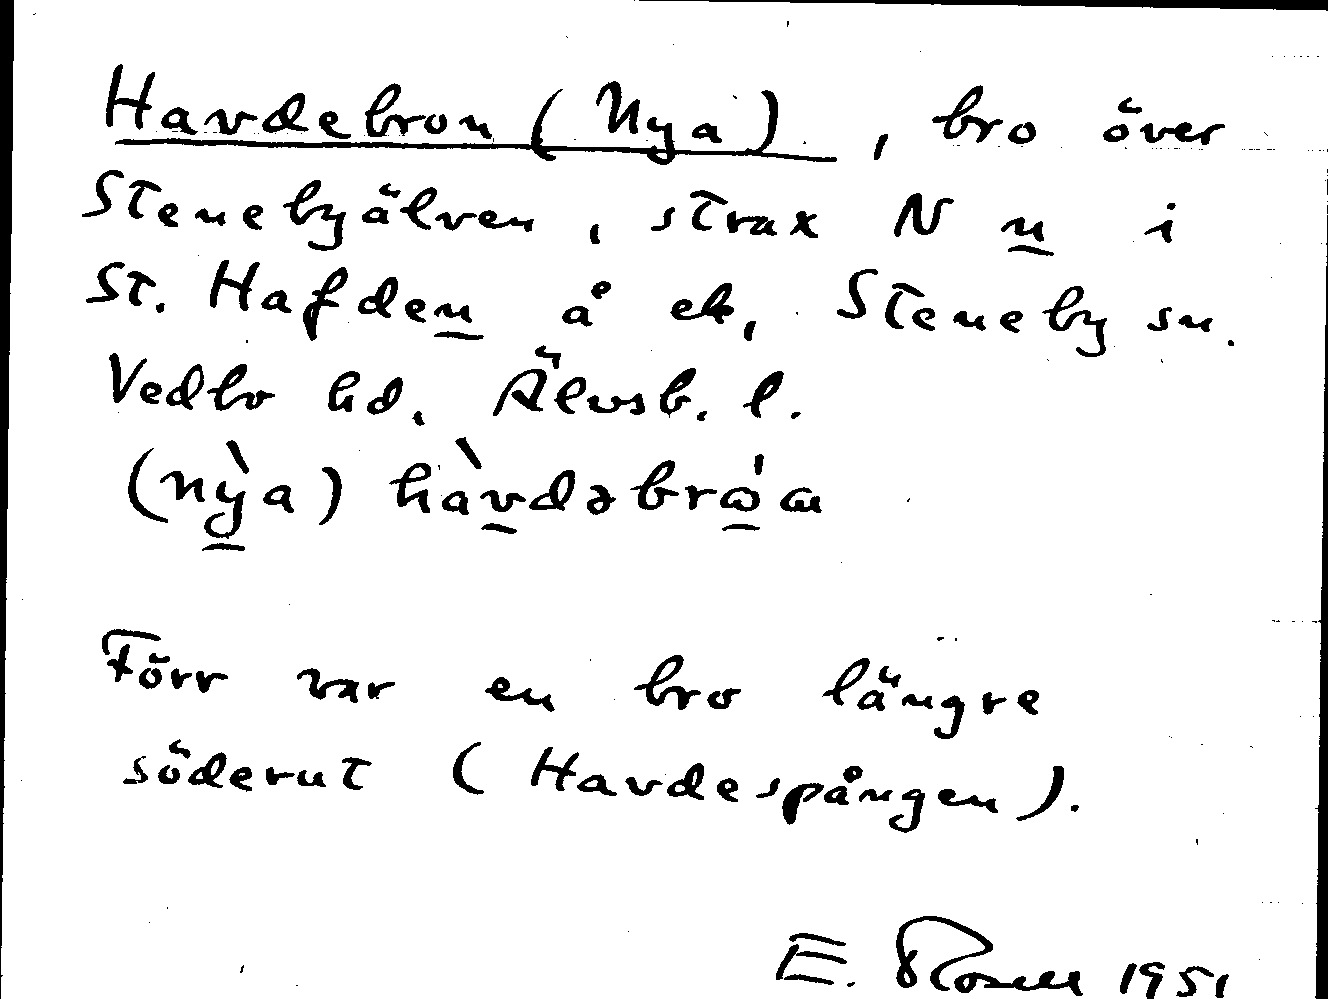 Havdebron (Nya), bro över
Stenebyälven, strax N n i
St. Hafden å ek, Steneby sn.
Vedbo hd. Älvsb. l.
(nỳa) hàvdəbrω̍ɷ
Förr var en bro längre
söderut (Havdespången).
E. Rosell 1951